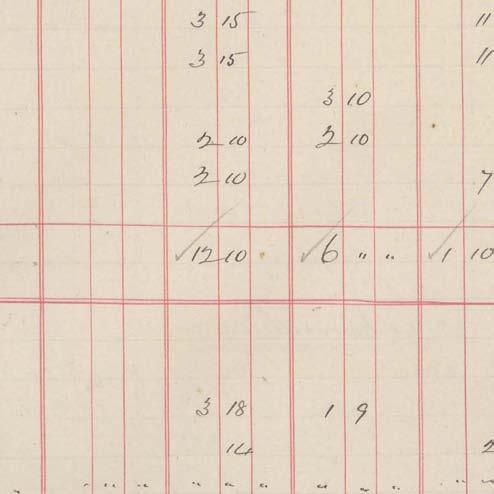 3 15 11
3 15 11
3 10
2 10 2 10
2 10 7
✓12 10 ✓6 " " ✓1 10
3 18 1 9
14 2
" " " " " " " " " " "